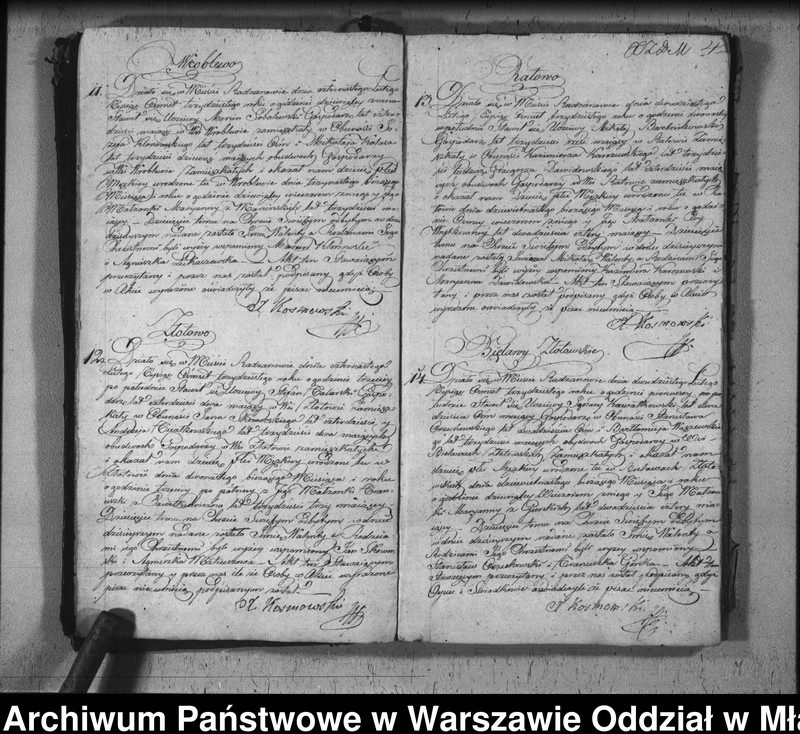 Wróblewo
11. Działo się w Mieście Radzanowie dnia czternastego Lutego
Tysiąc Ośmset trzydziestego roku o godzinie dziewiątej zrana
Stawił się Uczciwy Marcin Sobolewski Gospodarz lat czter-
dzieści mający w Wsi Wróblewie zamieszkały w Obecności Jó-
zefa Klonowskiego lat trzydzieści Ośm i Mikołaja
lat trzydzieści dziewięć mających obudwóch Gospodarzy
w Wsi Wróblewie zamieszkałych i okazał nam dziecię płci
Męskiej urodzone tu w Wróblewie dnia trzynastego bieżącego
Miesiąca i roku o godzinie dziewiątej wieczorem z niego i Jego
Małżonki Maryanny z lat trzydzieści ma-
jącej Dziecięciu temu na Chrzcie Świętym odbytym w dniu
dzisiejszym nadane zostało Imię Walenty a Rodzicami Jego
Chrzestnemi byli wyżej wspomniony
i Agnieszka Akt ten Stawającym
przeczytany i przez nas został podpisany gdyż Osoby
w Akcie wyrażone oświadczyły że pisać nieumieją
A Kosmowski
Złotowo
12. Działo się w Mieście Radzanowie dnia czternastego
Lutego Tysiąc Ośmset trzydziestego roku o godzinie trzeciej
po południu Stawił się Uczciwy Stefan Gospo-
darz lat czterdzieści dwa mający w Wsi Złotowie zamiesz-
kały w Obecności Jana lat czterdzieści i
Andrzeja lat trzydzieści dwa mających
obudwóch Gospodarzy w Wsi Złotowie zamieszkałych
i okazał nam Dziecię płci Męskiej urodzone tu w
Złotowie dnia dwunastego bieżącego Miesiąca i roku
o godzinie trzeciej po północy z Jego Małżonki Fran-
ciszki z lat trzydzieści trzy mającej
Dziecięciu temu na Chrzcie Świętym odbytym w dniu
dzisiejszym nadane zostało Imię Walenty a Rodzica
mi jego Chrzestnemi byli wyżej wspomniony Jan
i Agnieszka Akt ten Stawającym
przeczytany i przez nas ile że Osoby w Akcie wyrażone
pisać nieumieją podpisanym został
A Kosmowski
4
Ratowo
13. Działo się w Mieście Radzanowie dnia dwudziestego
Lutego Tysiąc Ośmset trzydziestego roku o godzinie dwunastej
w południe Stawił się Uczciwy Mikołaj
Gospodarz lat trzydzieści trzy mający w Ratowie zamie-
szkały w Obecności Kazimierza Karczewskiego lat trzydzie-
ści i Grzegorza Zawidowskiego lat czterdzieści mają-
cych obudwóch Gospodarzy w Wsi Ratowie zamieszkałych
i okazał nam Dziecię płci Męskiej urodzone tu w Ra-
towie dnia dwudziestego bieżącego Miesiąca i roku o godzi-
nie z niego i Jego Małżonki Ewy
lat dwadzieścia cztery mającej Dziecięciu
temu na Chrzcie Świętym Odbytym w dniu dzisiejszym
nadane zostało Imię Walenty a Rodzicami Jego
Chrzestnemi byli wyżej wspomniony Kazimierz Karczewski i
Maryanna Zawidowska Akt ten Stawającym przeczy-
tany i przez nas został podpisany gdyż Osoby w Akcie
wyrażone oświadczyły że pisać nieumieją
A Kosmowski
Bielawy Złotowskie
14. Działo się w Mieście Radzanowie dnia dwudziestego Lutego
Tysiąc Ośmset trzydziestego roku o godzinie pierwszej po po-
łudniu Stawił się Uczciwy Ignacy Kwiatkowski lat dwa
dzieścia Ośm mający Gospodarz w Obecności Stanisława
Orzechowskiego lat dwadzieścia Ośm i Bartłomieja
go lat trzydzieści mających obydwóch Gospodarzy w Wsi
Bielawach Złotowskich zamieszkałych i okazał nam
dziecię płci Męskiej urodzone tu w Bielawach Złoto-
wskich dnia dziewiętnastego bieżącego Miesiąca i roku
o godzinie dziewiątej wieczorem z niego i Jego Małżon-
ki Maryanny z Górskich lat dwadzieścia cztery ma-
jącej Dziecięciu temu na Chrzcie Świętym Odbytym
w dniu dzisiejszym nadane zostało Imię Walenty a
Rodzicami Jego Chrzestnemi byli wyżej wspomniony
Stanisław Orzechowski i Franciszka Górska Akt ten
Stawającym przeczytany i przez nas został podpisany gdyż
Ojciec i Świadkowie oświadczyli że pisać nieumieją
A Kosmowski
Archiwum Państwowe w Warszawie Oddział w Mła